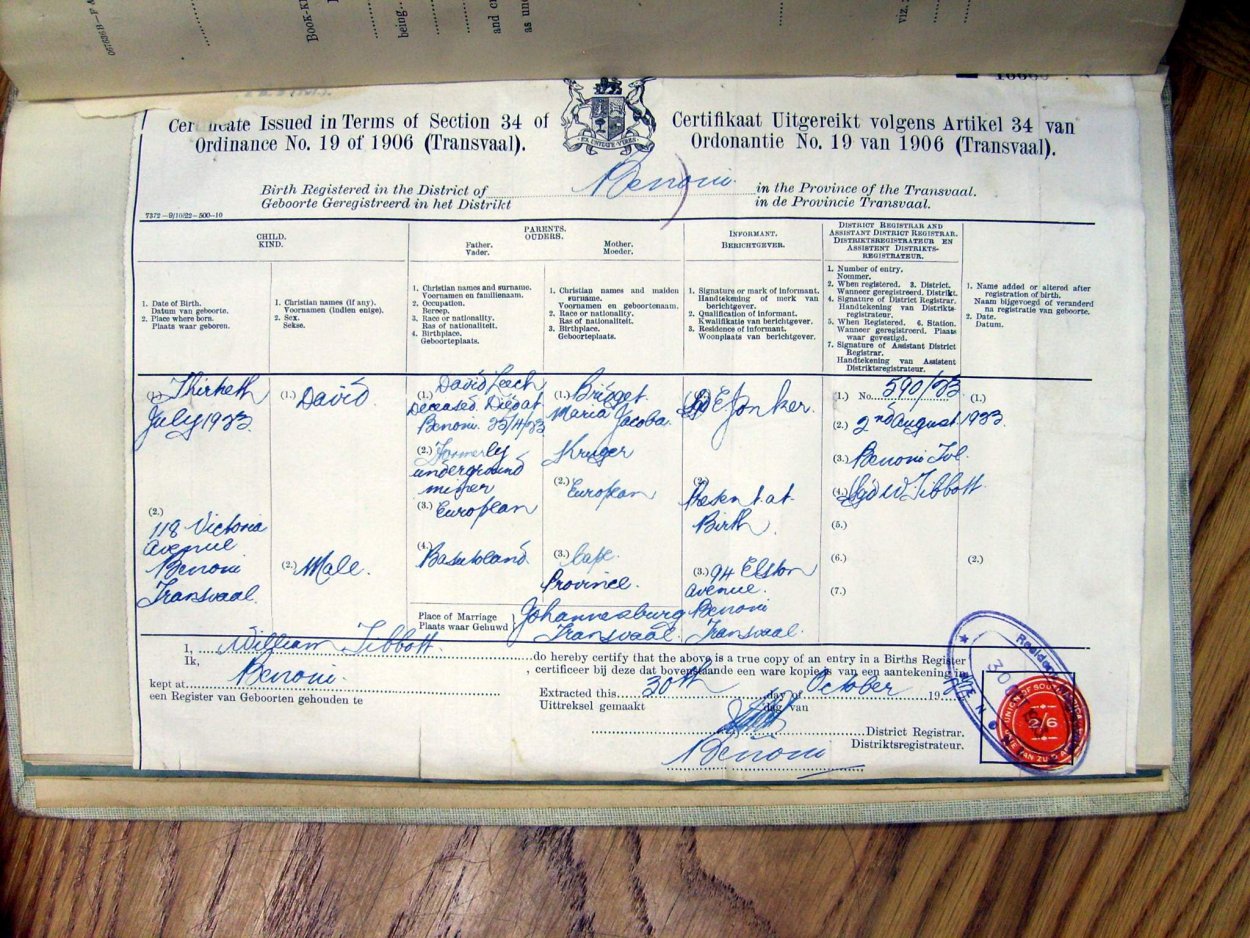 Book-K
being
and
as
viz.
Certificate Issued in Terms of Section 34 of
Ordinance No. 19 of 1906 (Transvaal).
Certifikaat Uitgereikt volgens Artikel 34 van
Ordonantie No. 19 van 1906 (Transvaal).
Birth Registered in the District of Benoni in the Province of the Transvaal.
Geboorte Geregistreerd in het Distrikt in de Provincie Transvaal.
7372—9/10/22—500—10
CHILD.
KIND.
PARENTS.
OUDERS.
Father.
Vader.
Mother.
Moeder.
INFORMANT.
BERICHTGEVER.
DISTRICT REGISTRAR AND
ASSISTANT DISTRICT REGISTRAR.
DISTRIKTSREGISTRATEUR EN
ASSISTENT DISTRIKTS-
REGISTRATEUR.
1. Date of Birth.
Datum van geboorte.
2. Place where born.
Plaats waar geboren.
1. Christian names (if any).
Voornamen (indien enige).
2. Sex.
Sekse.
1. Christian names and surname.
Voornamen en familienaam.
2. Occupation.
Beroep.
3. Race or nationality.
Ras of nationaliteit.
4. Birthplace.
Geboorteplaats.
1. Christian names and maiden
surname.
Voornamen en geboortenaam.
2. Race or nationality.
Ras of nationaliteit.
3. Birthplace.
Geboorteplaats.
1. Signature or mark of informant.
Handtekening of merk van
berichtgever.
2. Qualification of informant.
Kwalifikatie van berichtgever.
3. Residence of informant.
Woonplaats van berichtgever.
1. Number of entry.
Nommer.
2. When registered. 3. District.
Wanneer geregistreerd. Distrikt.
4. Signature of District Registrar.
Handtekening van Distrikts-
registrateur.
5. When Registered. 6. Station.
Wanneer geregistreerd. Plaats
waar gevestigd.
7. Signature of Assistant District
Registrar.
Handtekening van Assistent
Distriktsregistrateur.
1. Name added or altered after
registration of birth.
Naam bijgevoegd of veranderd
na registratie van geboorte.
2. Date.
Datum.
(1.) Thirtieth
July 1933
(2.)
118 Victoria
Avenue
Benoni
Transvaal.
(1.) David
(2.) Male.
(1.) David Leech
Deceased. Died at
Benoni. 25/4/33
(2.) Formerly
underground
miner
(3.) European
(4.) Basutoland
(1.) Bridget
Maria Jacoba
Kruger
(2.) European
(3.) Cape
Province.
Place of Marriage
Plaats waar Gehuwd
Johannesburg
Transvaal.
(1.) Sgd E. Jonker.
(2.)
Present at
Birth
(3.) 94 Elston
Avenue.
Benoni
Transvaal.
(1.) No. 590/33
(2.) 2nd August 1933
(3.) Benoni Tvl.
(4.) Sgd W. Tibbott
(5.)
(6.)
(7.)
(1.)
(2.)
I, William Tibbott. do hereby certify that the above is a true copy of an entry in a Births Register
Ik, , certificeer bij deze dat bovenstaande een ware kopie is van een aantekening in
kept at Benoni.
een Register van Geboorten gehouden te
Extracted this 30th day of October 19
Uittreksel gemaakt dag van
District Registrar.
Distriktsregistrateur.
Benoni
UNION OF SOUTH AFRICA
2/6
UNIE VAN ZUID AFRIKA
30